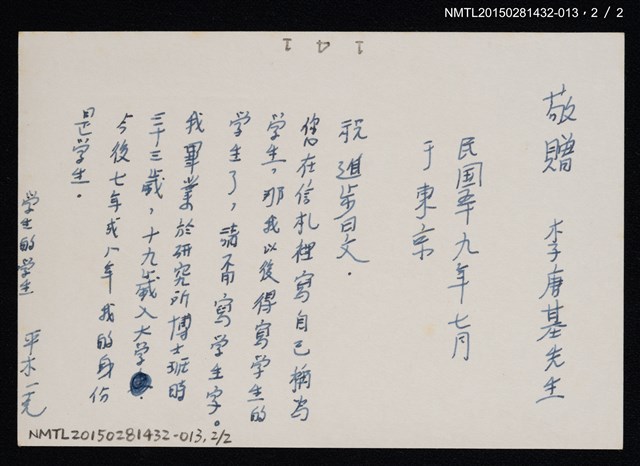 NMTL20150281432-013，2 / 2
1 4 1
敬贈 李唐基先生
民国五十九年七月
于東京
祝 進步日文．
您在信札裡寫自己稱為
学生，那我以後得寫学生的
学生了，請不甭寫学生字。
我畢業於研究所博士班時
三十三歲，十九歲入大学．
今後七年或八年我的身份
是学生．
学生的学生 平木一
NMTL20150281432-013, 2/2